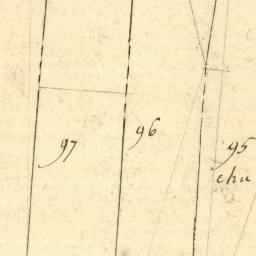 96
97
95
chu